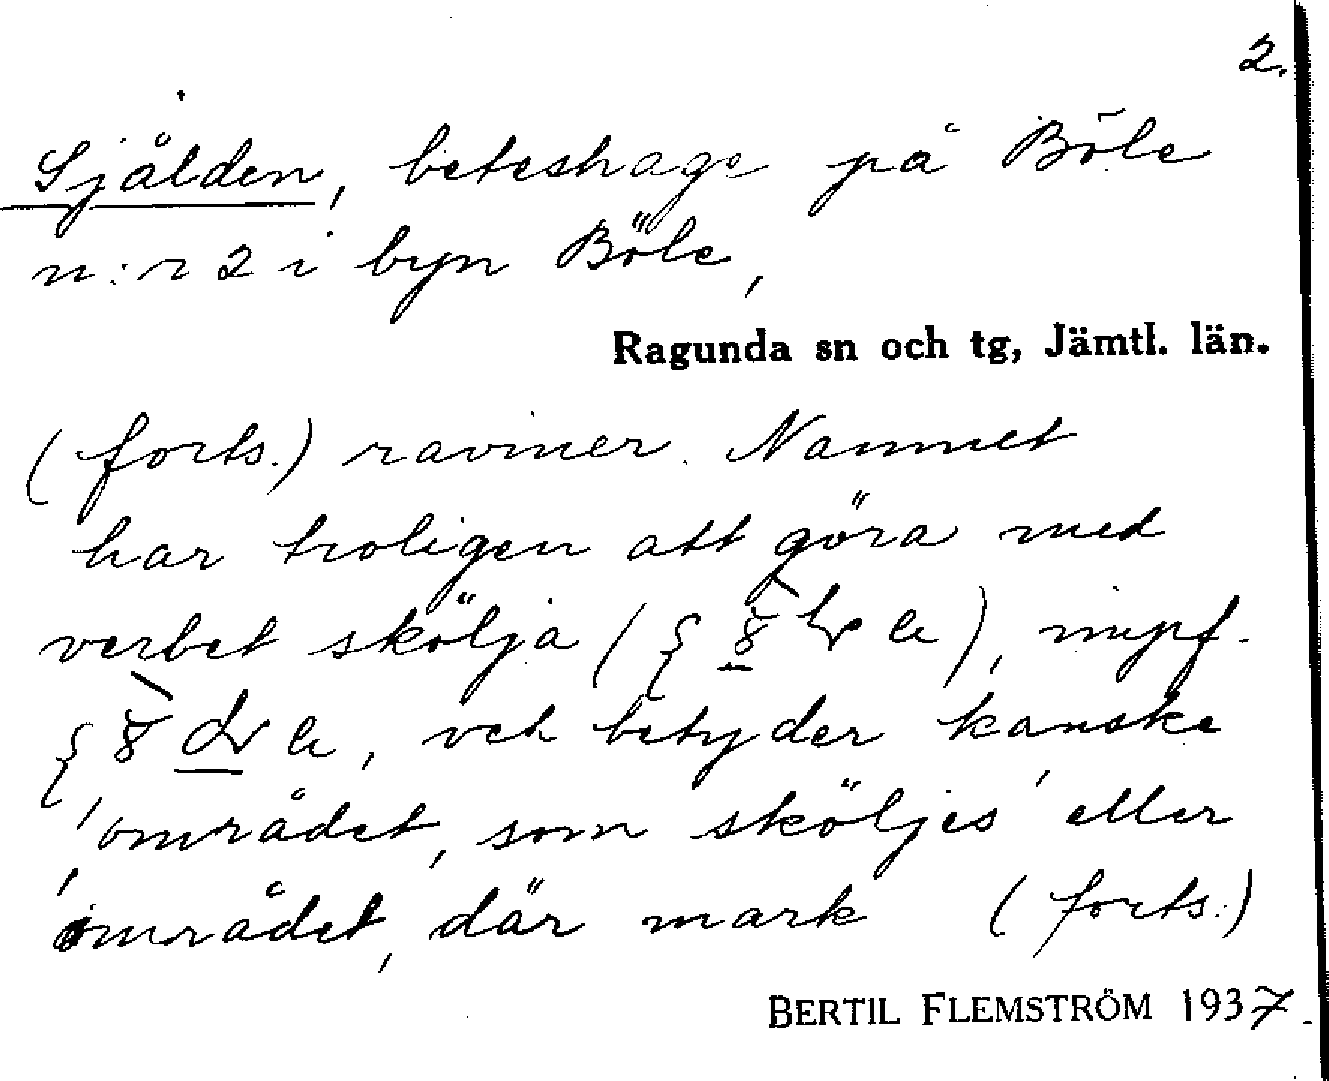 2.
Själden, beteshage på Böle
n:r 2 i byn Böle,
Ragunda sn och tg, Jämtl. län.
(forts.) raviner. Namnet
har troligen att göra med
verbet skölja ( ), impf.
, vet betyder kanske
'området, som sköljes' eller
'området, där mark (forts.)
BERTIL FLEMSTRÖM 1937.